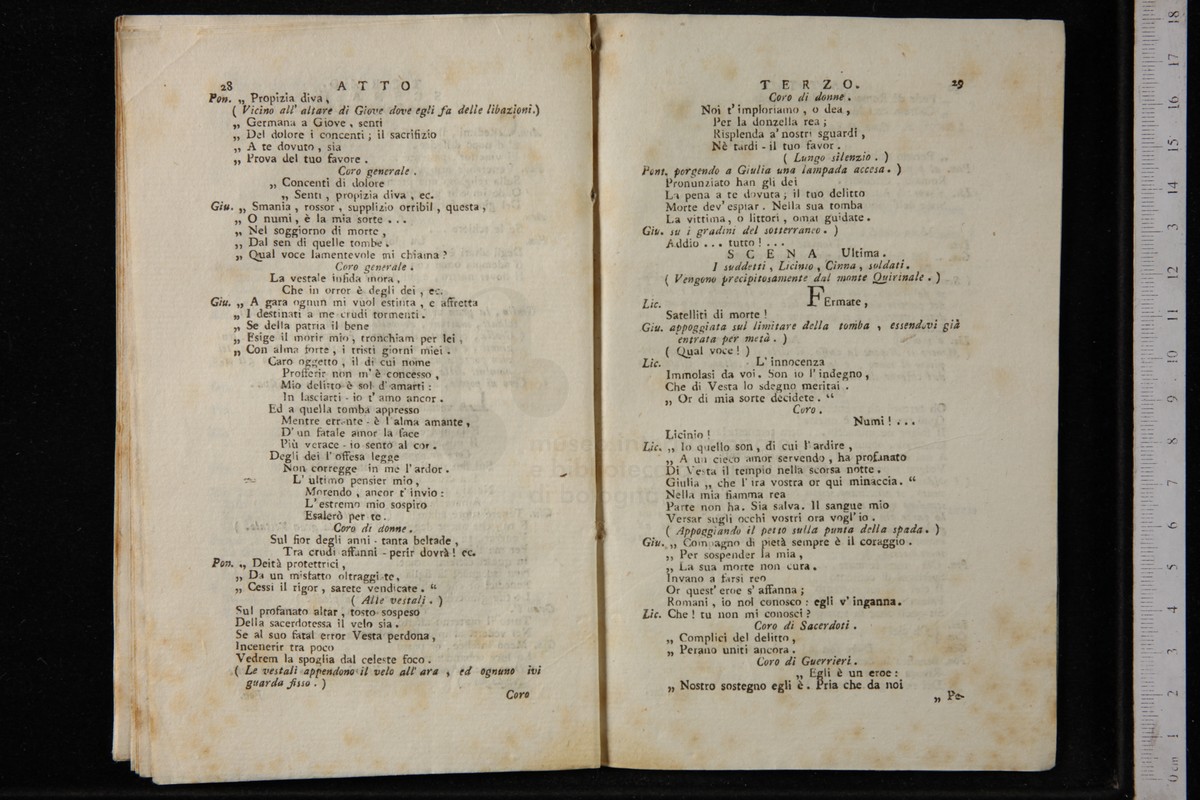 28 ATTO
Pon. „ Propizia diva,
( Vicino all' altare di Giove dove egli fa delle libazioni.)
„ Germana a Giove, senti
„ Del dolore i concenti; il sacrifizio
„ A te dovuto, sia
„ Prova del tuo favore.
Coro generale.
„ Concenti di dolore
„ Senti, propizia diva, ec.
Giu. „ Smania, rossor, supplizio orribil, questa,
„ O numi, è la mia sorte ...
„ Nel soggiorno di morte,
„ Dal sen di quelle tombe.
„ Qual voce lamentevole mi chiama?
Coro generale.
La vestale infida mora,
Che in orror è degli dei, ec.
Giu. „ A gara ognun mi vuol estinta, e affretta
„ I destinati a me crudi tormenti.
„ Se della patria il bene
„ Esige il morir mio, tronchiam per lei,
„ Con alma forte, i tristi giorni miei.
Caro oggetto, il di cui nome
Profferir non m' è concesso,
Mio delitto è sol d' amarti:
In lasciarti - io t' amo ancor.
Ed a quella tomba appresso
Mentre errante - è l' alma amante,
D' un fatale amor la face
Più verace - io sento al cor.
Degli dei l' offesa legge
Non corregge in me l' ardor.
L' ultimo pensier mio,
Morendo, ancor t' invio:
L' estremo mio sospiro
Esalerò per te.
Coro di donne.
Sul fior degli anni - tanta beltade,
Tra crudi affanni - perir dovrà! ec.
Pon. „ Deità protettrici,
„ Da un misfatto oltraggiate,
„ Cessi il rigor, sarete vendicate. “
( Alle vestali. )
Sul profanato altar, tosto sospeso
Della sacerdotessa il velo sia.
Se al suo fatal error Vesta perdona,
Incenerir tra poco
Vedrem la spoglia dal celeste foco.
( Le vestali appendono il velo all' ara, ed ognuno ivi
guarda fisso. )
Coro
TERZO. 29
Coro di donne.
Noi t' imploriamo, o dea,
Per la donzella rea;
Risplenda a' nostri sguardi,
Nè tardi - il tuo favor.
( Lungo silenzio. )
Pont. porgendo a Giulia una lampada accesa. )
Pronunziato han gli dei
La pena a te dovuta; il tuo delitto
Morte dev' espiar. Nella sua tomba
La vittima, o littori, omai guidate.
Giu. su i gradini del sotterraneo. )
Addio ... tutto! ...
SCENA Ultima.
I suddetti, Licinio, Cinna, soldati.
( Vengono precipitosamente dal monte Quirinale. )
Lic. Fermate,
Satelliti di morte!
Giu. appoggiata sul limitare della tomba, essendovi già
entrata per metà. )
( Qual voce! )
Lic. L' innocenza
Immolasi da voi. Son io l' indegno,
Che di Vesta lo sdegno meritai.
„ Or di mia sorte decidete. “
Coro.
Numi! ...
Licinio!
Lic. „ Io quello son, di cui l' ardire,
„ A un cieco amor servendo, ha profanato
Di Vesta il tempio nella scorsa notte.
Giulia „ che l' ira vostra or qui minaccia. “
Nella mia fiamma rea
Parte non ha. Sia salva. Il sangue mio
Versar sugli occhi vostri ora vogl' io.
( Appoggiando il petto sulla punta della spada. )
Giu. „ Compagno di pietà sempre è il coraggio.
„ Per sospender la mia,
„ La sua morte non cura.
Invano a farsi reo
Or quest' eroe s' affanna;
Romani, io nol conosco: egli v' inganna.
Lic. Che! tu non mi conosci?
Coro di Sacerdoti.
„ Complici del delitto,
„ Perano uniti ancora.
Coro di Guerrieri.
„ Egli è un eroe:
„ Nostro sostegno egli è. Pria che da noi
„ Pe-
museo in
e biblioteca
di bologna
0 cm 1 2 3 4 5 6 7 8 9 10 11 12 13 14 15 16 17 18